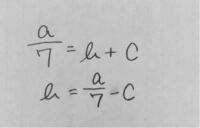 a/7 = h + C
h = a/7 - C